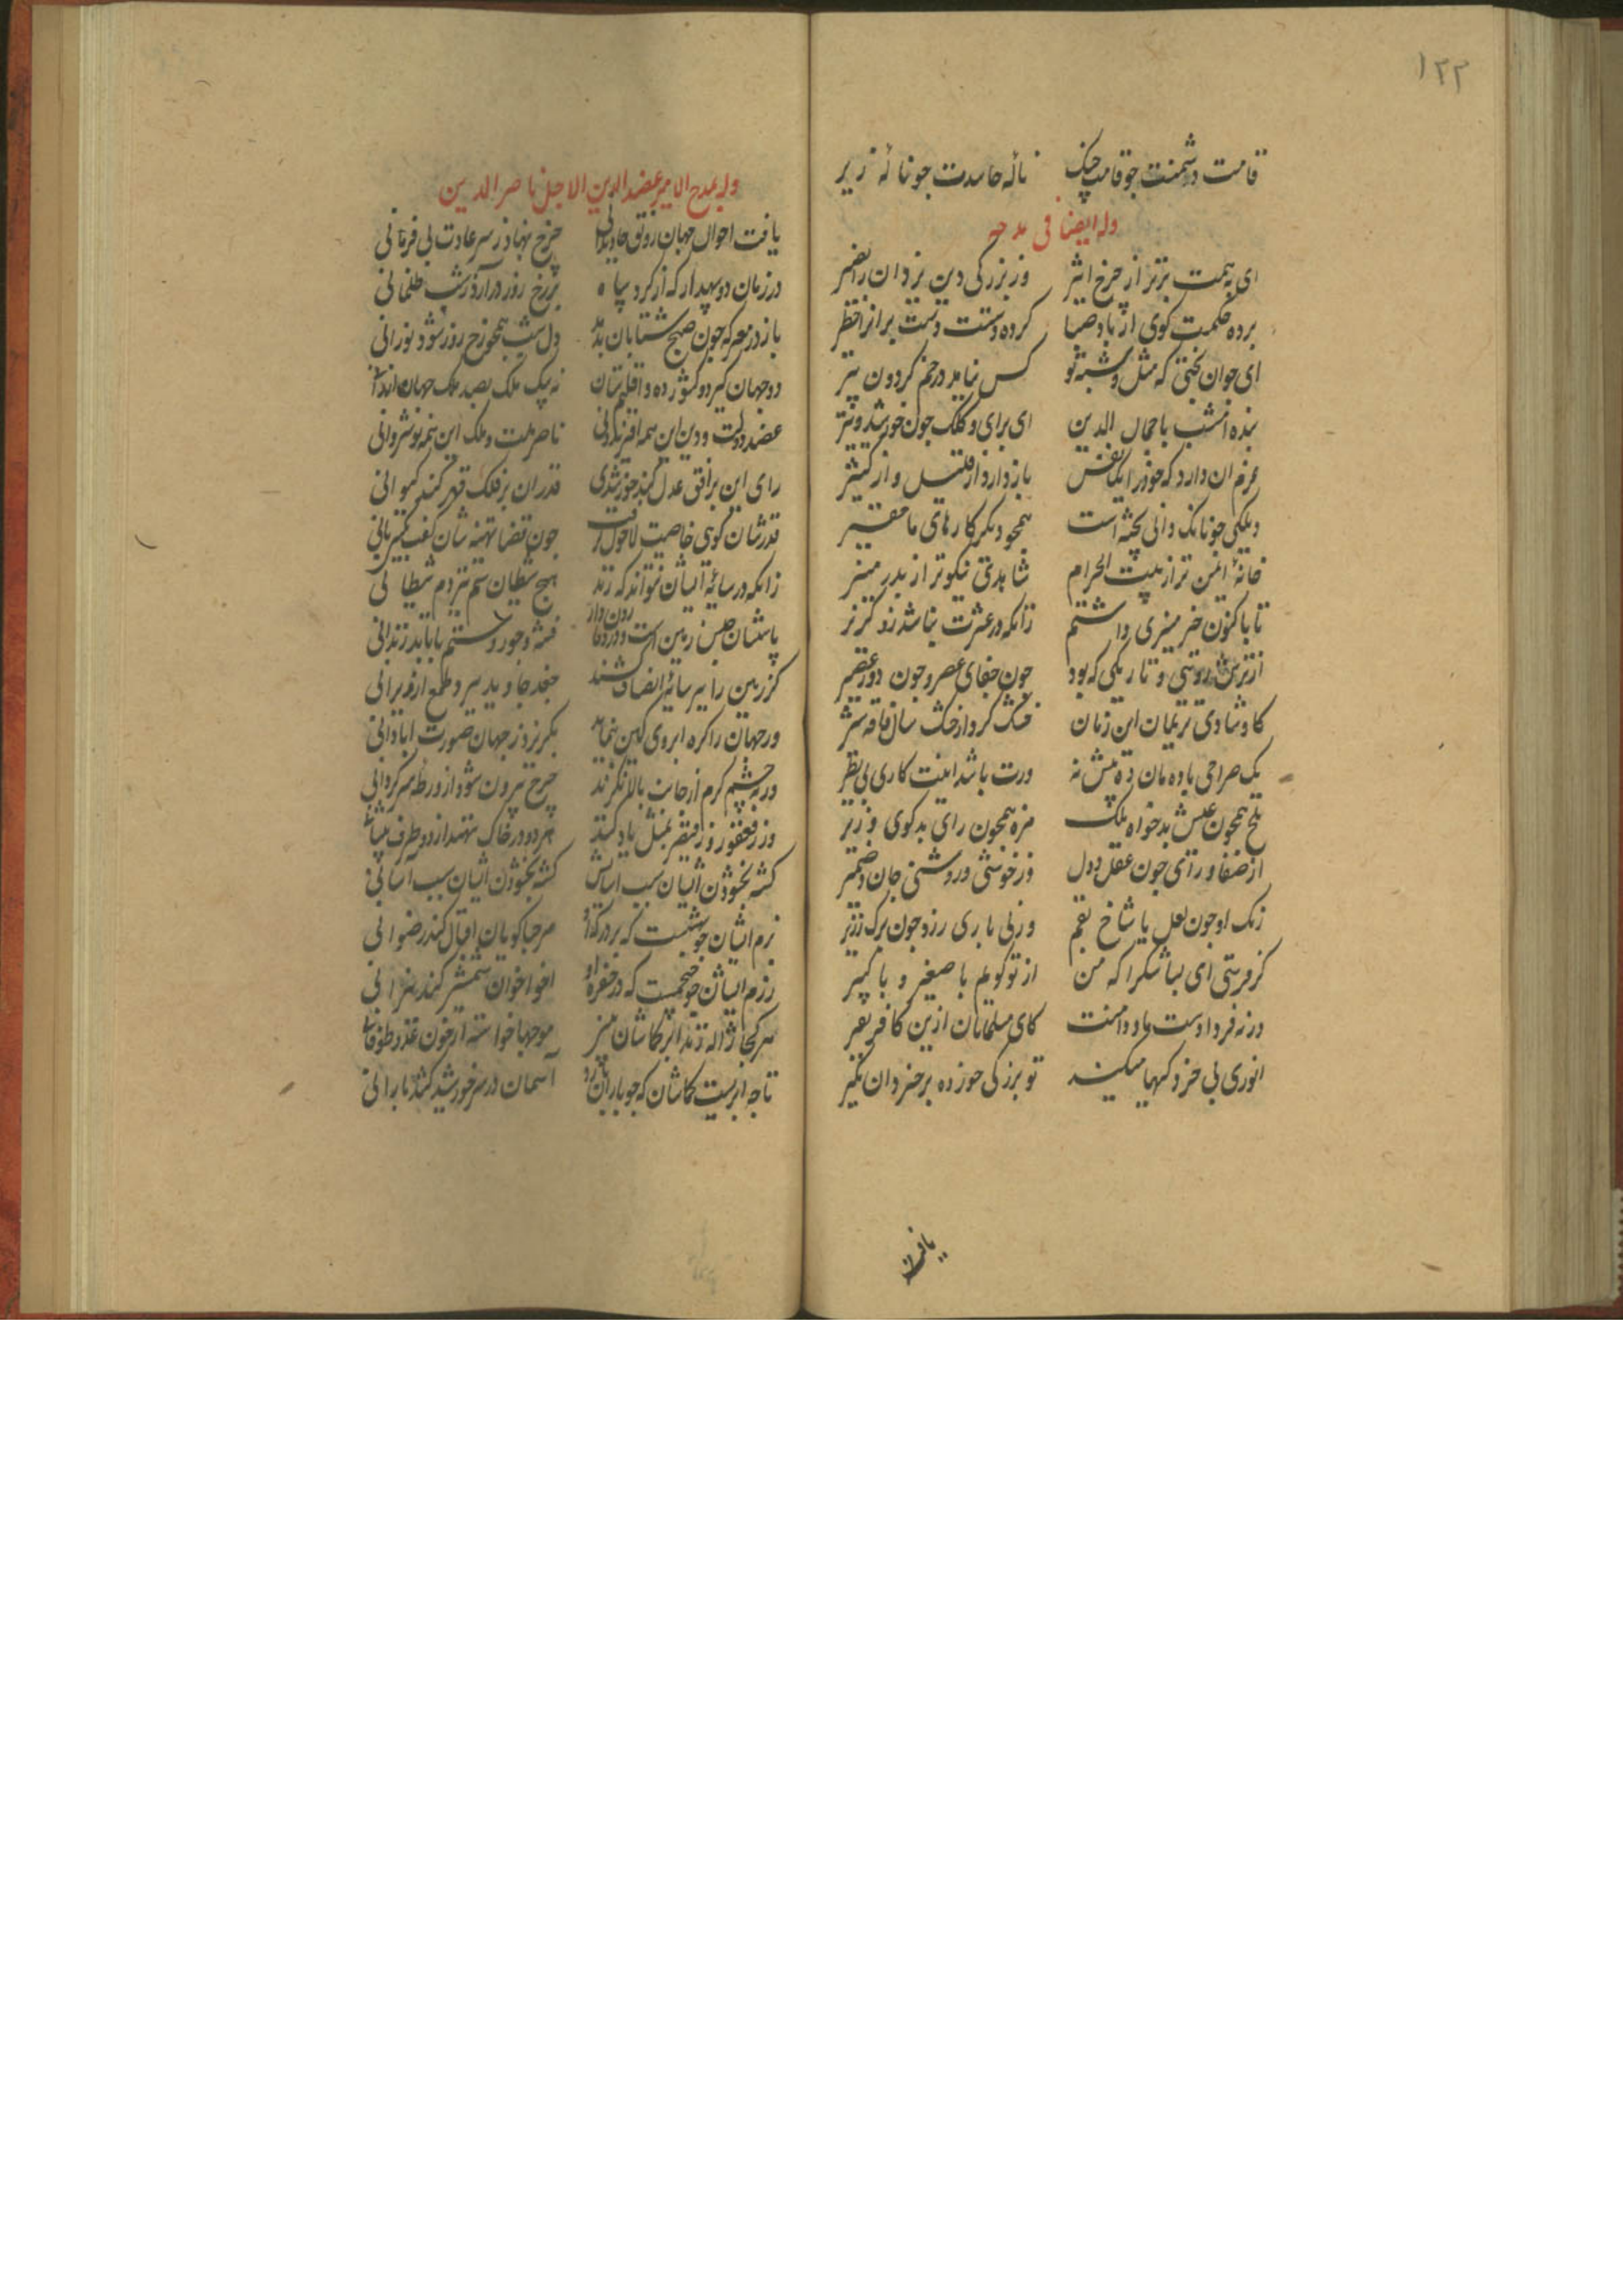 ۱۲۲
قامت دشمنت جو قامت چنک نالهٔ حاسدت جو نالهٔ زیر
وله ایضا فی مدحه
ای بهمت برتر از چرخ اثیر وز بزرکی دین یزدان را نصیر
برده حکمت کوی از باد صبا کرده دستت دست بر ابر
ای جوان بختی که مثل و شبه تو کس نیابد در خم کردون پیر
بنده امشب با جمال الدین ای برای و کلک جون خورشید و تیر
عزم ان دارد که خود را یکنفس باز دارد از قلیل و از کثیر
ولیکی جونانک دانی پخته است همجو دیکر کارهای ما
خانهٔ ایمن تر از بیت الحرام شاهدی نیکوتر از بدر منیر
تا باکنون خیر میزی داشتم زانکه در عشرت نباشد زو کزیر
از ترش روئی و تاریکی که بود جون جفای عصر و جون دور
کاو شادی نریمان این زمان خشک کرد از خشک سال فاقه شیر
یک صراحی باده مان ده بیش نه ورت باشد اینت کاری بی نظیر
تلخ همجون عیش بدخواه ملک مزه همجون رای بدکوی وزیر
از صفا و رای جون عقل و دل وز خوشی و روشنی جان و ضمیر
رنک او جون لعل یا شاخ بقم وز نی باری رزد جون برک زریر
کر فرستی ای بسا شکرا که من از تو کویم با صغیر و با کبیر
ور نه فردا دست ما و دامنت کای مسلمانان ازین کافر نفیر
انوری بی خردکیها میکند تو بزرکی جوز ده بر خردان مکیر
یافت
وله یمدح الامیر عضد الدین الاجل ناصر الدین
یافت احوال جهان رونق جاویدانی چرخ بنهاد ز سر عادت بی فرمانی
در زمان دو سپهدار که از کرد سپاه بر رخ روز در آرند شب ظلمانی
باز در معرکه جون صبح شتابان دل شب همجو رخ روز شود نورانی
دو جهان کیر دو کشور ده و اقلیم ستان نه بیک ملک بصد ملک جهان
عضد دولت و دین این همه ناصر ملت و ملک این همه نوشروانی
رای این بر افق عدل کند خورشیدی قدر ان بر فلک قهر کند کیوانی
قدرشان کوئی خاصیت لاحول جون قضا تهنه شان کفت
زانکه در سایهٔ ایشان نتواند که زند هیج شیطان ستم نیز دم شیطانی
پاسشان حبس زمین است و درو فتنه و جور و ستم تا بابد زندانی
کر زمین را بسر سایهٔ انصاف کشند جغد جاوید ببرد طمع از ویرانی
ور جهان را کره ابروی کین بنماید بکریزد ز جهان صورت ابادانی
ور بچشم کرم از جانب بالا نکرند چرخ بیرون شود از ورطه سرکردانی
ور ز فغفور و ز قیصر بمثل یاد کنند هر دو در خاک نهند از دو طرف
کشته بخشودن ایشان سبب اسایش کشته بخشودن ایشان سبب آسانی
بزم ایشان جو بهشتست که بر درکه او مرحبا کویان اقبال کند رضوانی
رزم ایشان جو جحیمست که در حفره او اخو اخوان شمشیر کند نیرانی
هر کجا ژاله زند ابر کمانشان موجها خواسته از خون عدو طوفانی
تا جه ابریست کمانشان که جو باران بارد آسمان در سر خورشید کشد بارانی